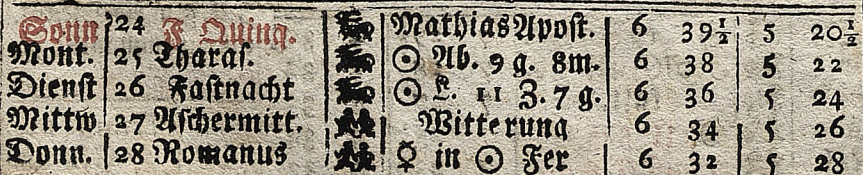 Sonn 24 F Quinq. Mathias Apost. 6 39½ 5 20½
Mont. 25 Tharas. ☉ Ab. 9 g. 8m. 6 38 5 22
Dienst 26 Fastnacht ☉ L. 11 Z. 7 g. 6 36 5 24
Mittw 27 Aschermitt. Witterung 6 34 5 26
Donn. 28 Romanus ☿ in ☉ Fer 6 32 5 28